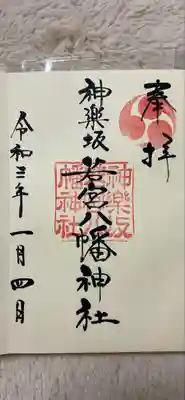 奉拝
神楽坂若宮八幡神社
神楽坂
若宮八
幡神社
令和三年一月四日